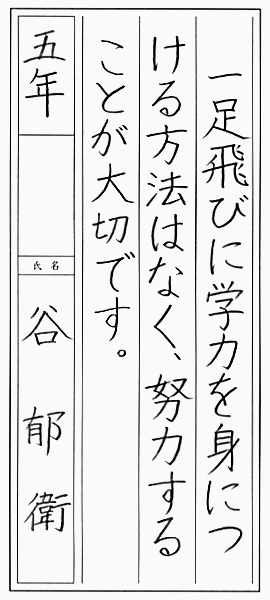 一足飛びに学力を身につ
ける方法はなく、努力する
ことが大切です。
五年
氏名
谷郁衛